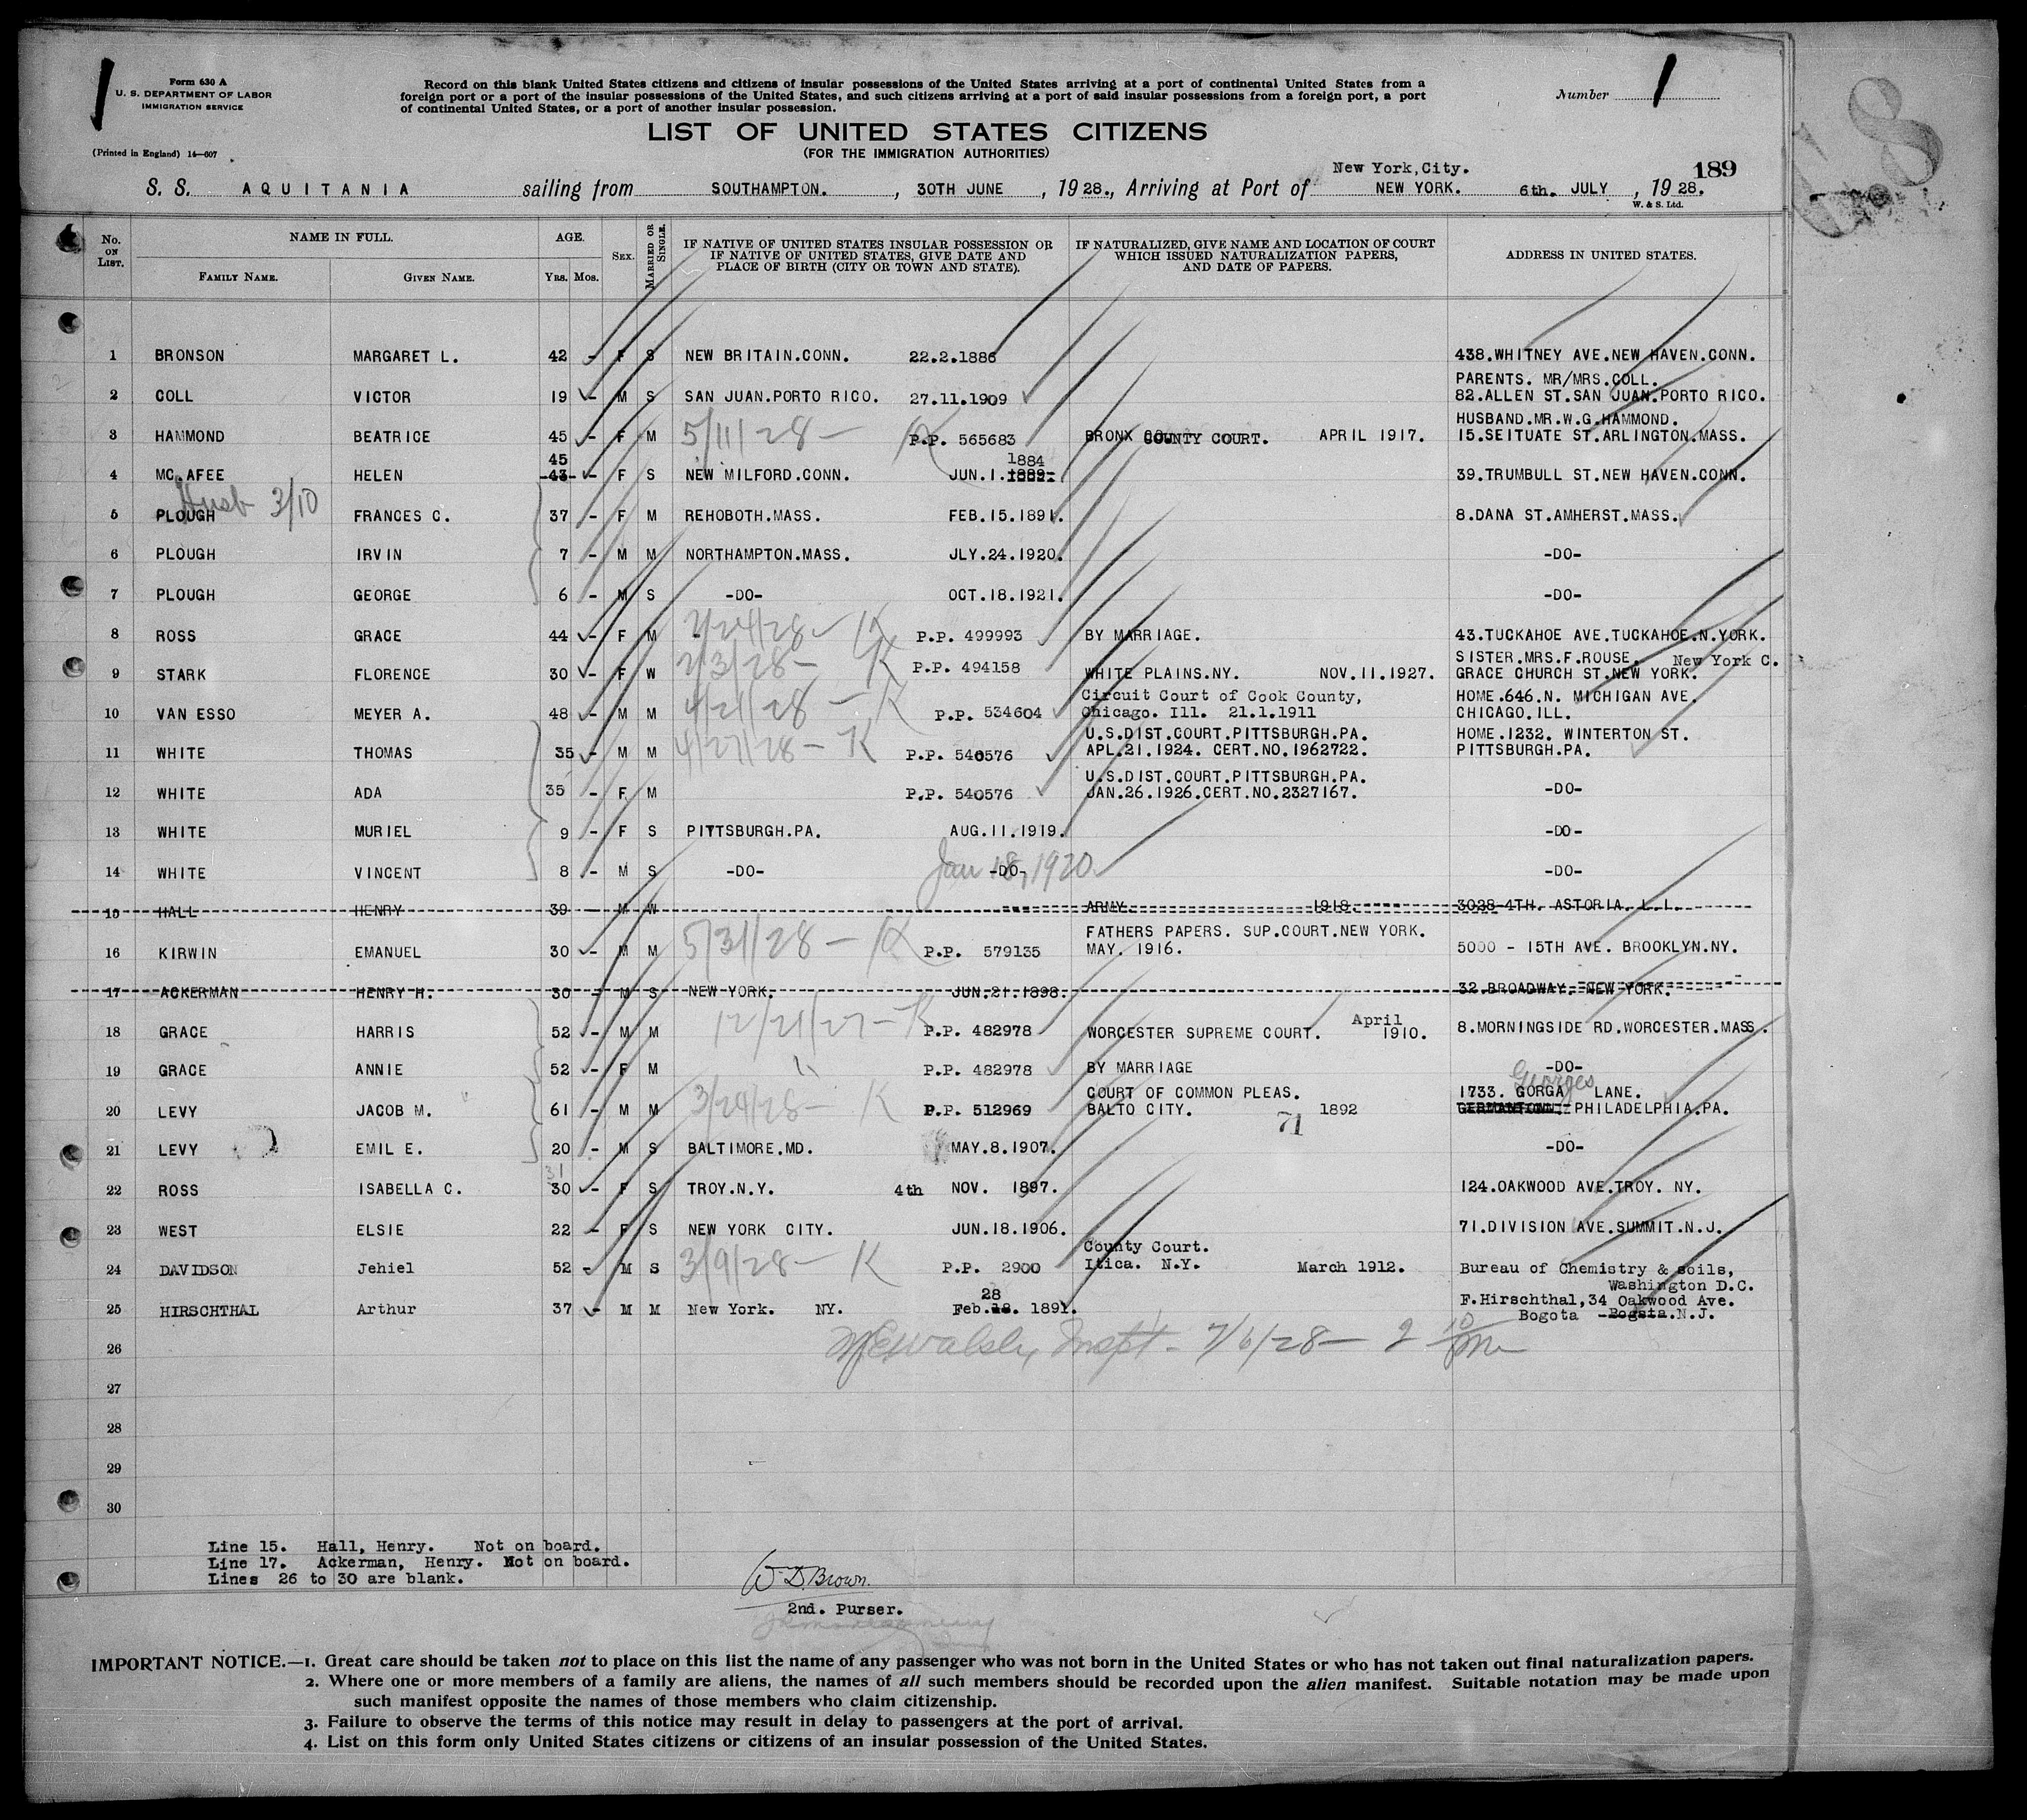 Form 630 A
U. S. DEPARTMENT OF LABOR
IMMIGRATION SERVICE
(Printed in England) 14—607
Record on this blank United States citizens and citizens of insular possessions of the United States arriving at a port of continental United States from a
foreign port or a port of the insular possessions of the United States, and such citizens arriving at a port of said insular possessions from a foreign port, a port
of continental United States, or a port of another insular possession.
Number 1
LIST OF UNITED STATES CITIZENS
(FOR THE IMMIGRATION AUTHORITIES)
189
New York, City.
S. S. AQUITANIA sailing from SOUTHAMPTON. , 30TH JUNE , 1928., Arriving at Port of NEW YORK. 6th. JULY , 1928.
W. & S. Ltd.
No. ON LIST. NAME IN FULL. FAMILY NAME. GIVEN NAME. AGE. Yrs. Mos. SEX. MARRIED OR SINGLE. IF NATIVE OF UNITED STATES INSULAR POSSESSION OR IF NATIVE OF UNITED STATES, GIVE DATE AND PLACE OF BIRTH (CITY OR TOWN AND STATE). IF NATURALIZED, GIVE NAME AND LOCATION OF COURT WHICH ISSUED NATURALIZATION PAPERS, AND DATE OF PAPERS. ADDRESS IN UNITED STATES.
1 BRONSON MARGARET L. 42 - F S NEW BRITAIN.CONN. 22.2.1886 438.WHITNEY AVE.NEW HAVEN.CONN.
PARENTS. MR/MRS.COLL.
2 COLL VICTOR 19 - M S SAN JUAN.PORTO RICO. 27.11.1909 82.ALLEN ST.SAN JUAN.PORTO RICO.
HUSBAND.MR.W.G.HAMMOND.
3 HAMMOND BEATRICE 45 - F M 5/11/28 - P.P. 565683 BRONX CO. COUNTY COURT. APRIL 1917. 15.SEITUATE ST.ARLINGTON.MASS.
45 1884
4 MC.AFEE HELEN 43 - F S NEW MILFORD.CONN. JUN.1.1882. 39.TRUMBULL ST.NEW HAVEN.CONN.
Husb 3/10
5 PLOUGH FRANCES C. 37 - F M REHOBOTH.MASS. FEB.15.1891. 8.DANA ST.AMHERST.MASS.
6 PLOUGH IRVIN 7 - M M NORTHAMPTON.MASS. JLY.24.1920. -DO-
7 PLOUGH GEORGE 6 - M S -DO- OCT.18.1921. -DO-
8 ROSS GRACE 44 - F M 2/24/28 - K P.P. 499993 BY MARRIAGE. 43.TUCKAHOE AVE.TUCKAHOE.N.YORK.
SISTER.MRS.F.ROUSE. New York C.
9 STARK FLORENCE 30 - F W 2/3/28 - K P.P. 494158 WHITE PLAINS.NY. NOV.11.1927. GRACE CHURCH ST.NEW YORK.
Circuit Court of Cook County, HOME.646.N. MICHIGAN AVE.
10 VAN ESSO MEYER A. 48 - M M 4/21/28 - K P.P. 534604 Chicago. Ill. 21.1.1911 CHICAGO.ILL.
U.S.DIST.COURT.PITTSBURGH.PA. HOME.1232. WINTERTON ST.
11 WHITE THOMAS 35 - M M 4/27/28 - K P.P. 540576 APL.21.1924. CERT.NO.1962722. PITTSBURGH.PA.
U.S.DIST.COURT.PITTSBURGH.PA.
12 WHITE ADA 35 - F M P.P. 540576 JAN.26.1926.CERT.NO.2327167. -DO-
13 WHITE MURIEL 9 - F S PITTSBURGH.PA. AUG.11.1919. -DO-
14 WHITE VINCENT 8 - M S -DO- -DO- Jan 18, 1920 -DO-
15 HALL HENRY 39 - M W ARMY 1918 3028-4TH. ASTORIA. L.I.
FATHERS PAPERS. SUP.COURT.NEW YORK.
16 KIRWIN EMANUEL 30 - M M 5/31/28 - K P.P. 579135 MAY. 1916. 5000 - 15TH AVE. BROOKLYN.NY.
17 ACKERMAN HENRY H. 30 - M S NEW YORK. JUN.21.1898. 32.BROADWAY. NEW YORK.
April
18 GRACE HARRIS 52 - M M 12/21/27 - K P.P. 482978 WORCESTER SUPREME COURT. 1910. 8.MORNINGSIDE RD.WORCESTER.MASS.
19 GRACE ANNIE 52 - F M " P.P. 482978 BY MARRIAGE -DO-
Georges
COURT OF COMMON PLEAS. 1733. GORGA LANE.
20 LEVY JACOB M. 61 - M M 3/24/28 - K P.P. 512969 BALTO CITY. 71 1892 GERMANTOWN. PHILADELPHIA.PA.
21 LEVY EMIL E. 20 - M S BALTIMORE.MD. MAY.8.1907. -DO-
31
22 ROSS ISABELLA C. 30 - F S TROY.N.Y. 4th NOV. 1897. 124.OAKWOOD AVE.TROY. NY.
23 WEST ELSIE 22 - F S NEW YORK CITY. JUN.18.1906. 71.DIVISION AVE.SUMMIT.N.J.
County Court.
24 DAVIDSON Jehiel 52 - M S 3/9/28 - K P.P. 2900 Itica. N.Y. March 1912. Bureau of Chemistry & soils,
Washington D.C.
28 F.Hirschthal,34 Oakwood Ave.
25 HIRSCHTHAL Arthur 37 - M M New York. NY. Feb.18. 1891. Bogota Bogata.N.J.
26 McWalsh, Inspt - 7/6/28 - 2 10/PM
27
28
29
30
Line 15. Hall, Henry. Not on board.
Line 17. Ackerman, Henry. Not on board.
Lines 26 to 30 are blank.
W D. Brown.
2nd. Purser.
IMPORTANT NOTICE.—1. Great care should be taken not to place on this list the name of any passenger who was not born in the United States or who has not taken out final naturalization papers.
2. Where one or more members of a family are aliens, the names of all such members should be recorded upon the alien manifest. Suitable notation may be made upon
such manifest opposite the names of those members who claim citizenship.
3. Failure to observe the terms of this notice may result in delay to passengers at the port of arrival.
4. List on this form only United States citizens or citizens of an insular possession of the United States.